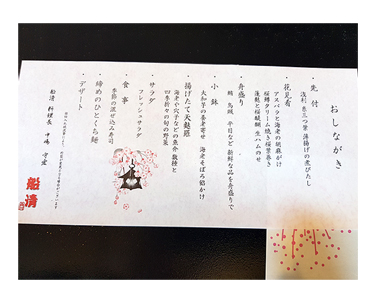 おしながき
・先付
浅利 糸三つ葉 薄揚げの煮びたし
・花見肴
アスパラと海老の胡麻がけ
桜鱒クリーム焼き桜葉巻き
蓮麩と桜醍醐 生ハムのせ
・舟盛り
鯛 鳥賊 平目など新鮮な品を舟盛りで
・小鉢
大和芋の養老寄せ 海老そぼろ餡かけ
・揚げたて天麩羅
海老や穴子などの魚介数種と
四季折々の旬の野菜
・サラダ
フレッシュサラダ
・食事
季節の混ぜ込み寿司
・締めのひとくち麺
・デザート
船清 料理長 中嶋
船清